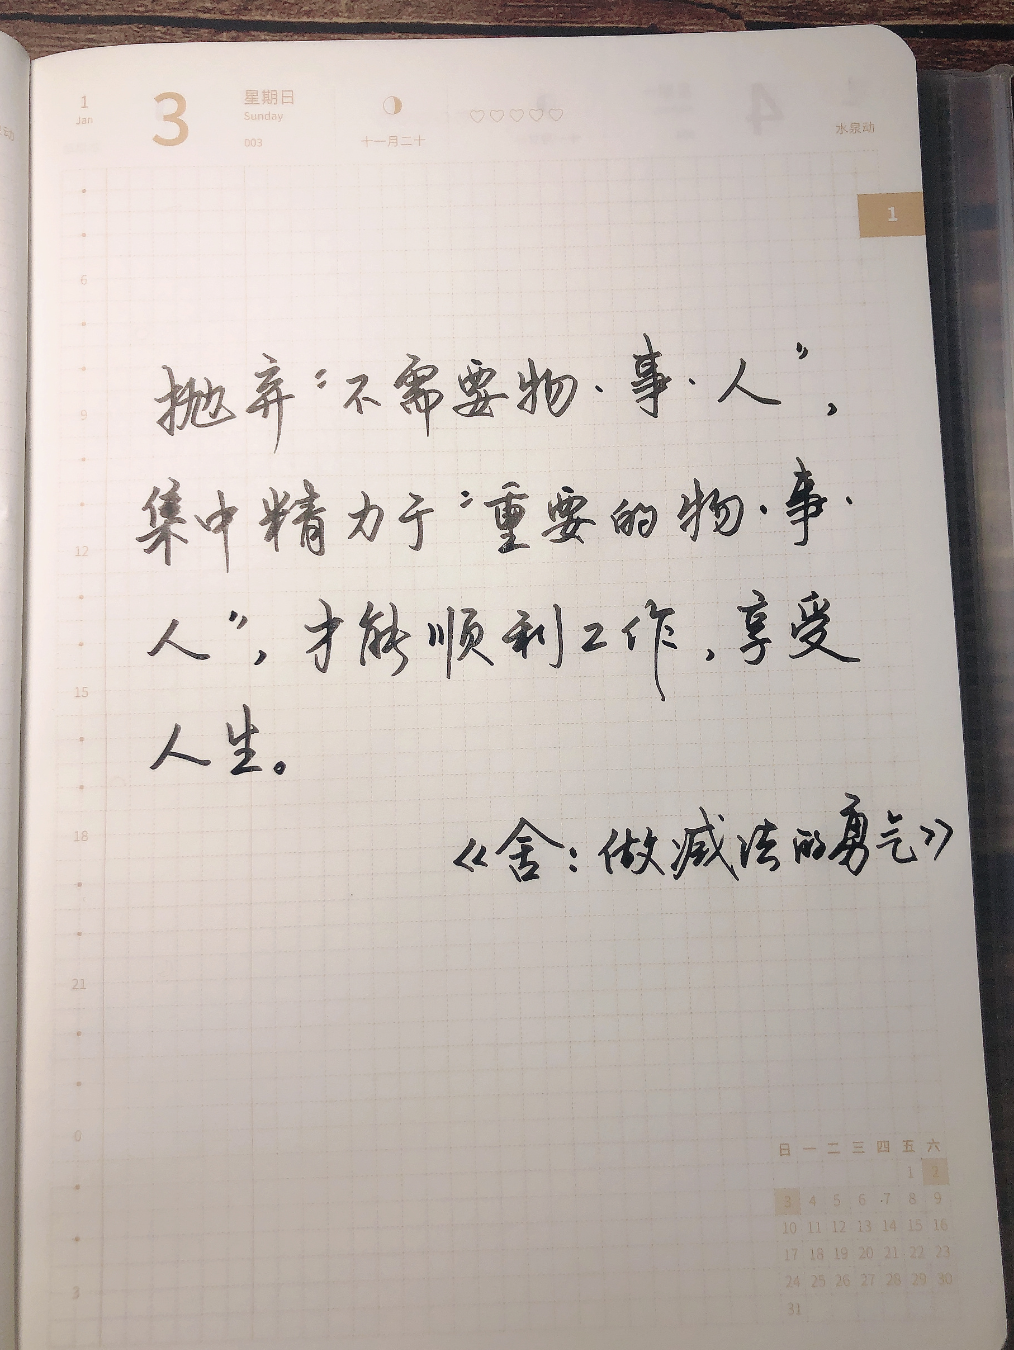 1
Jan
3
星期日
Sunday
003
十一月二十
水泉动
1
6
9
12
15
18
21
0
3
抛弃“不需要物·事·人”,
集中精力于“重要的物·事·
人”,才能顺利工作,享受
人生。
《舍:做减法的勇气》
日 一 二 三 四 五 六
1 2
3 4 5 6 7 8 9
10 11 12 13 14 15 16
17 18 19 20 21 22 23
24 25 26 27 28 29 30
31